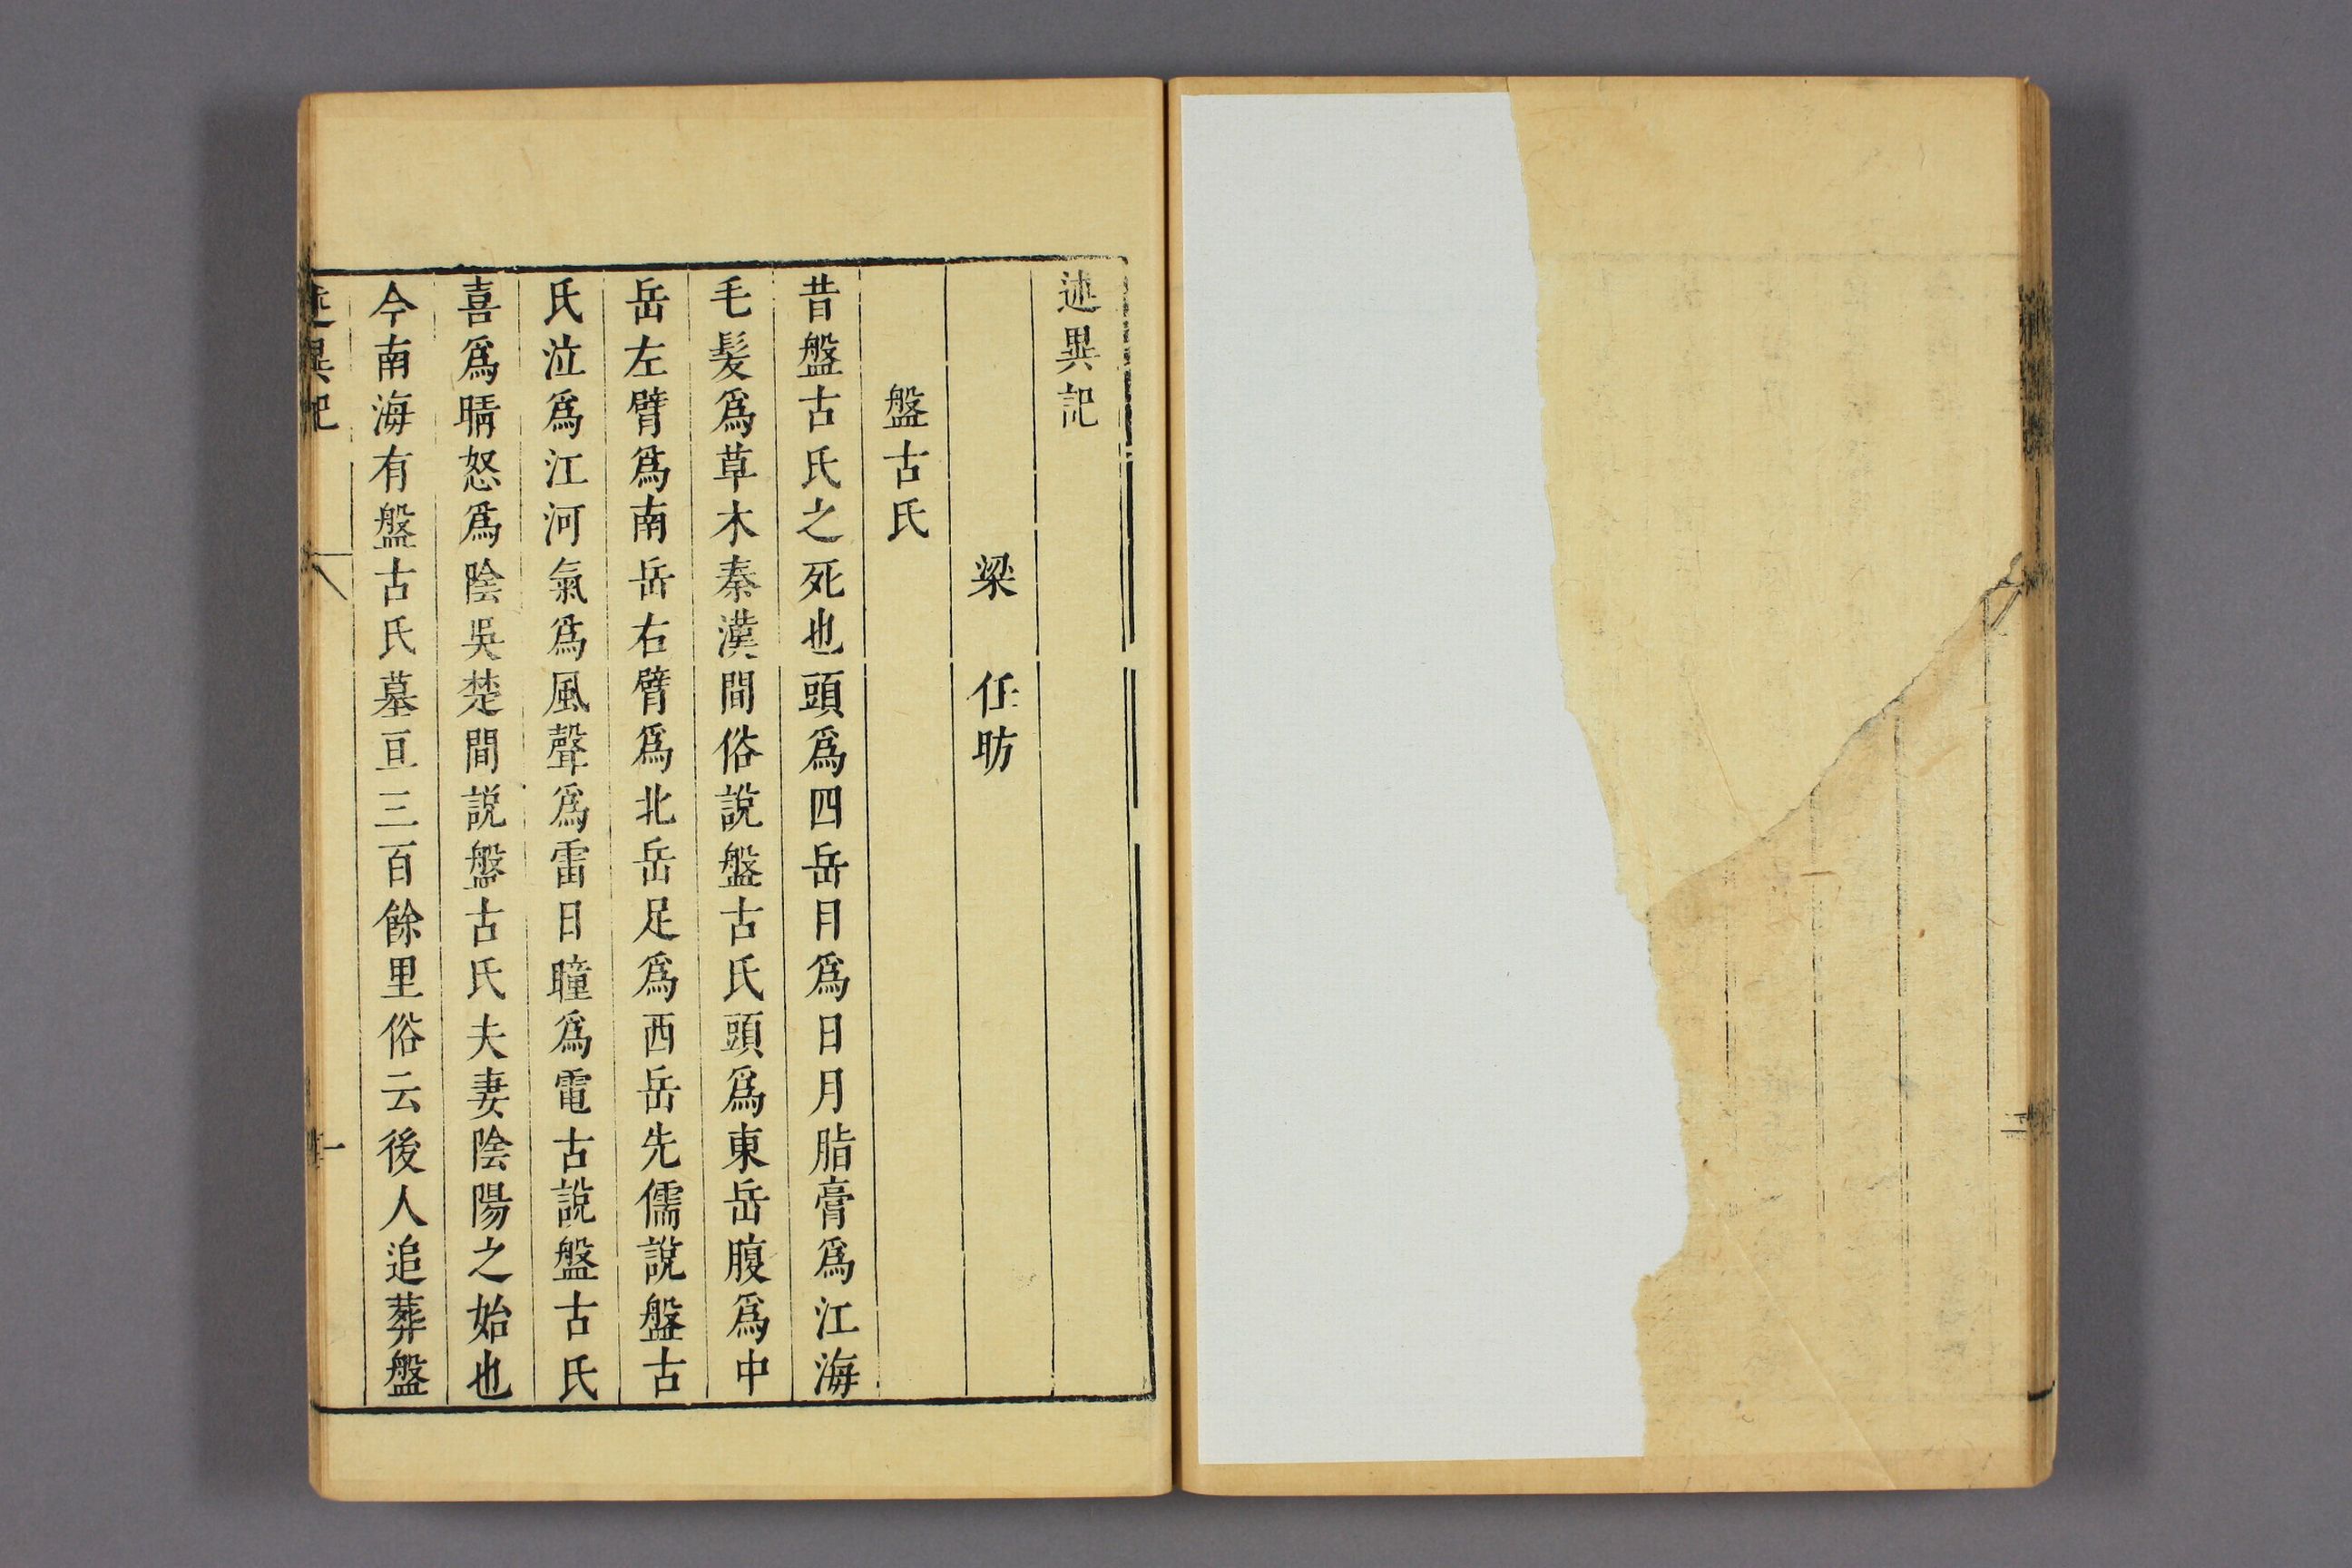 述異記
梁 任昉
盤古氏
昔盤古氏之死也頭爲四岳目爲日月脂膏爲江海
毛髮爲草木秦漢間俗說盤古氏頭爲東岳腹爲中
岳左臂爲南岳右臂爲北岳足爲西岳先儒說盤古
氏泣爲江河氣爲風聲爲雷目瞳爲電古說盤古氏
喜爲晴怒爲陰吳楚間說盤古氏夫妻陰陽之始也
今南海有盤古氏墓亘三百餘里俗云後人追葬盤
述異記
一